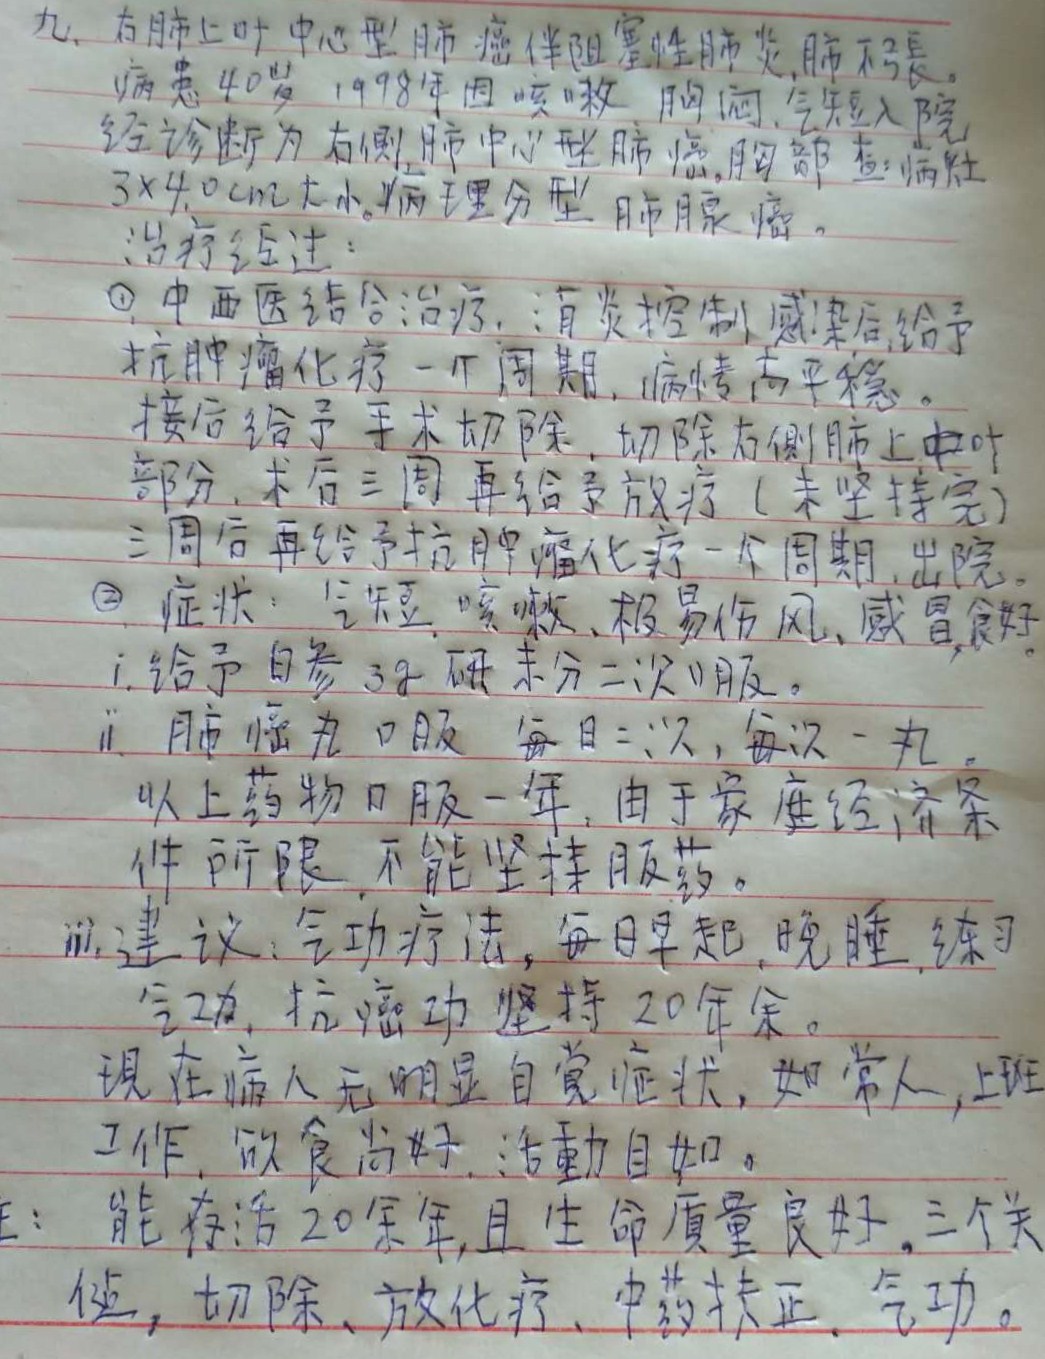 九、右肺上叶中心型肺癌伴阻塞性肺炎,肺不張。
病患40岁 1998年因咳嗽 胸闷,气短入院
经诊断为右側,肺中心型肺癌。胸部 查:病灶
3×4.0cm大小。病理分型 肺腺癌。
治疗经过:
①,中西医结合治疗,消炎控制感染后,给予
抗肿瘤化疗一个周期,病情尚平稳。
接后给予手术切除,切除右側肺上中叶
部分,术后三周再给予放疗(未坚持完)
三周后再给予抗肿瘤化疗一个周期,出院。
②,症状:气短,咳嗽、极易伤风、感冒,食好。
i.给予白参3g研末分二次口服。
ii.肺癌丸口服 每日二次,每次一丸。
以上药物口服一年,由于家庭经济条
件所限,不能坚持服药。
iii.建议:气功疗法,每日早起,晚睡,练习
气功,抗癌功坚持20年余。
現在病人无明显自觉症状,如常人,上班
工作,饮食尚好,活動自如。
注:能存活20余年,且生命质量良好。三个关
健,切除、放化疗、中药扶正、气功。